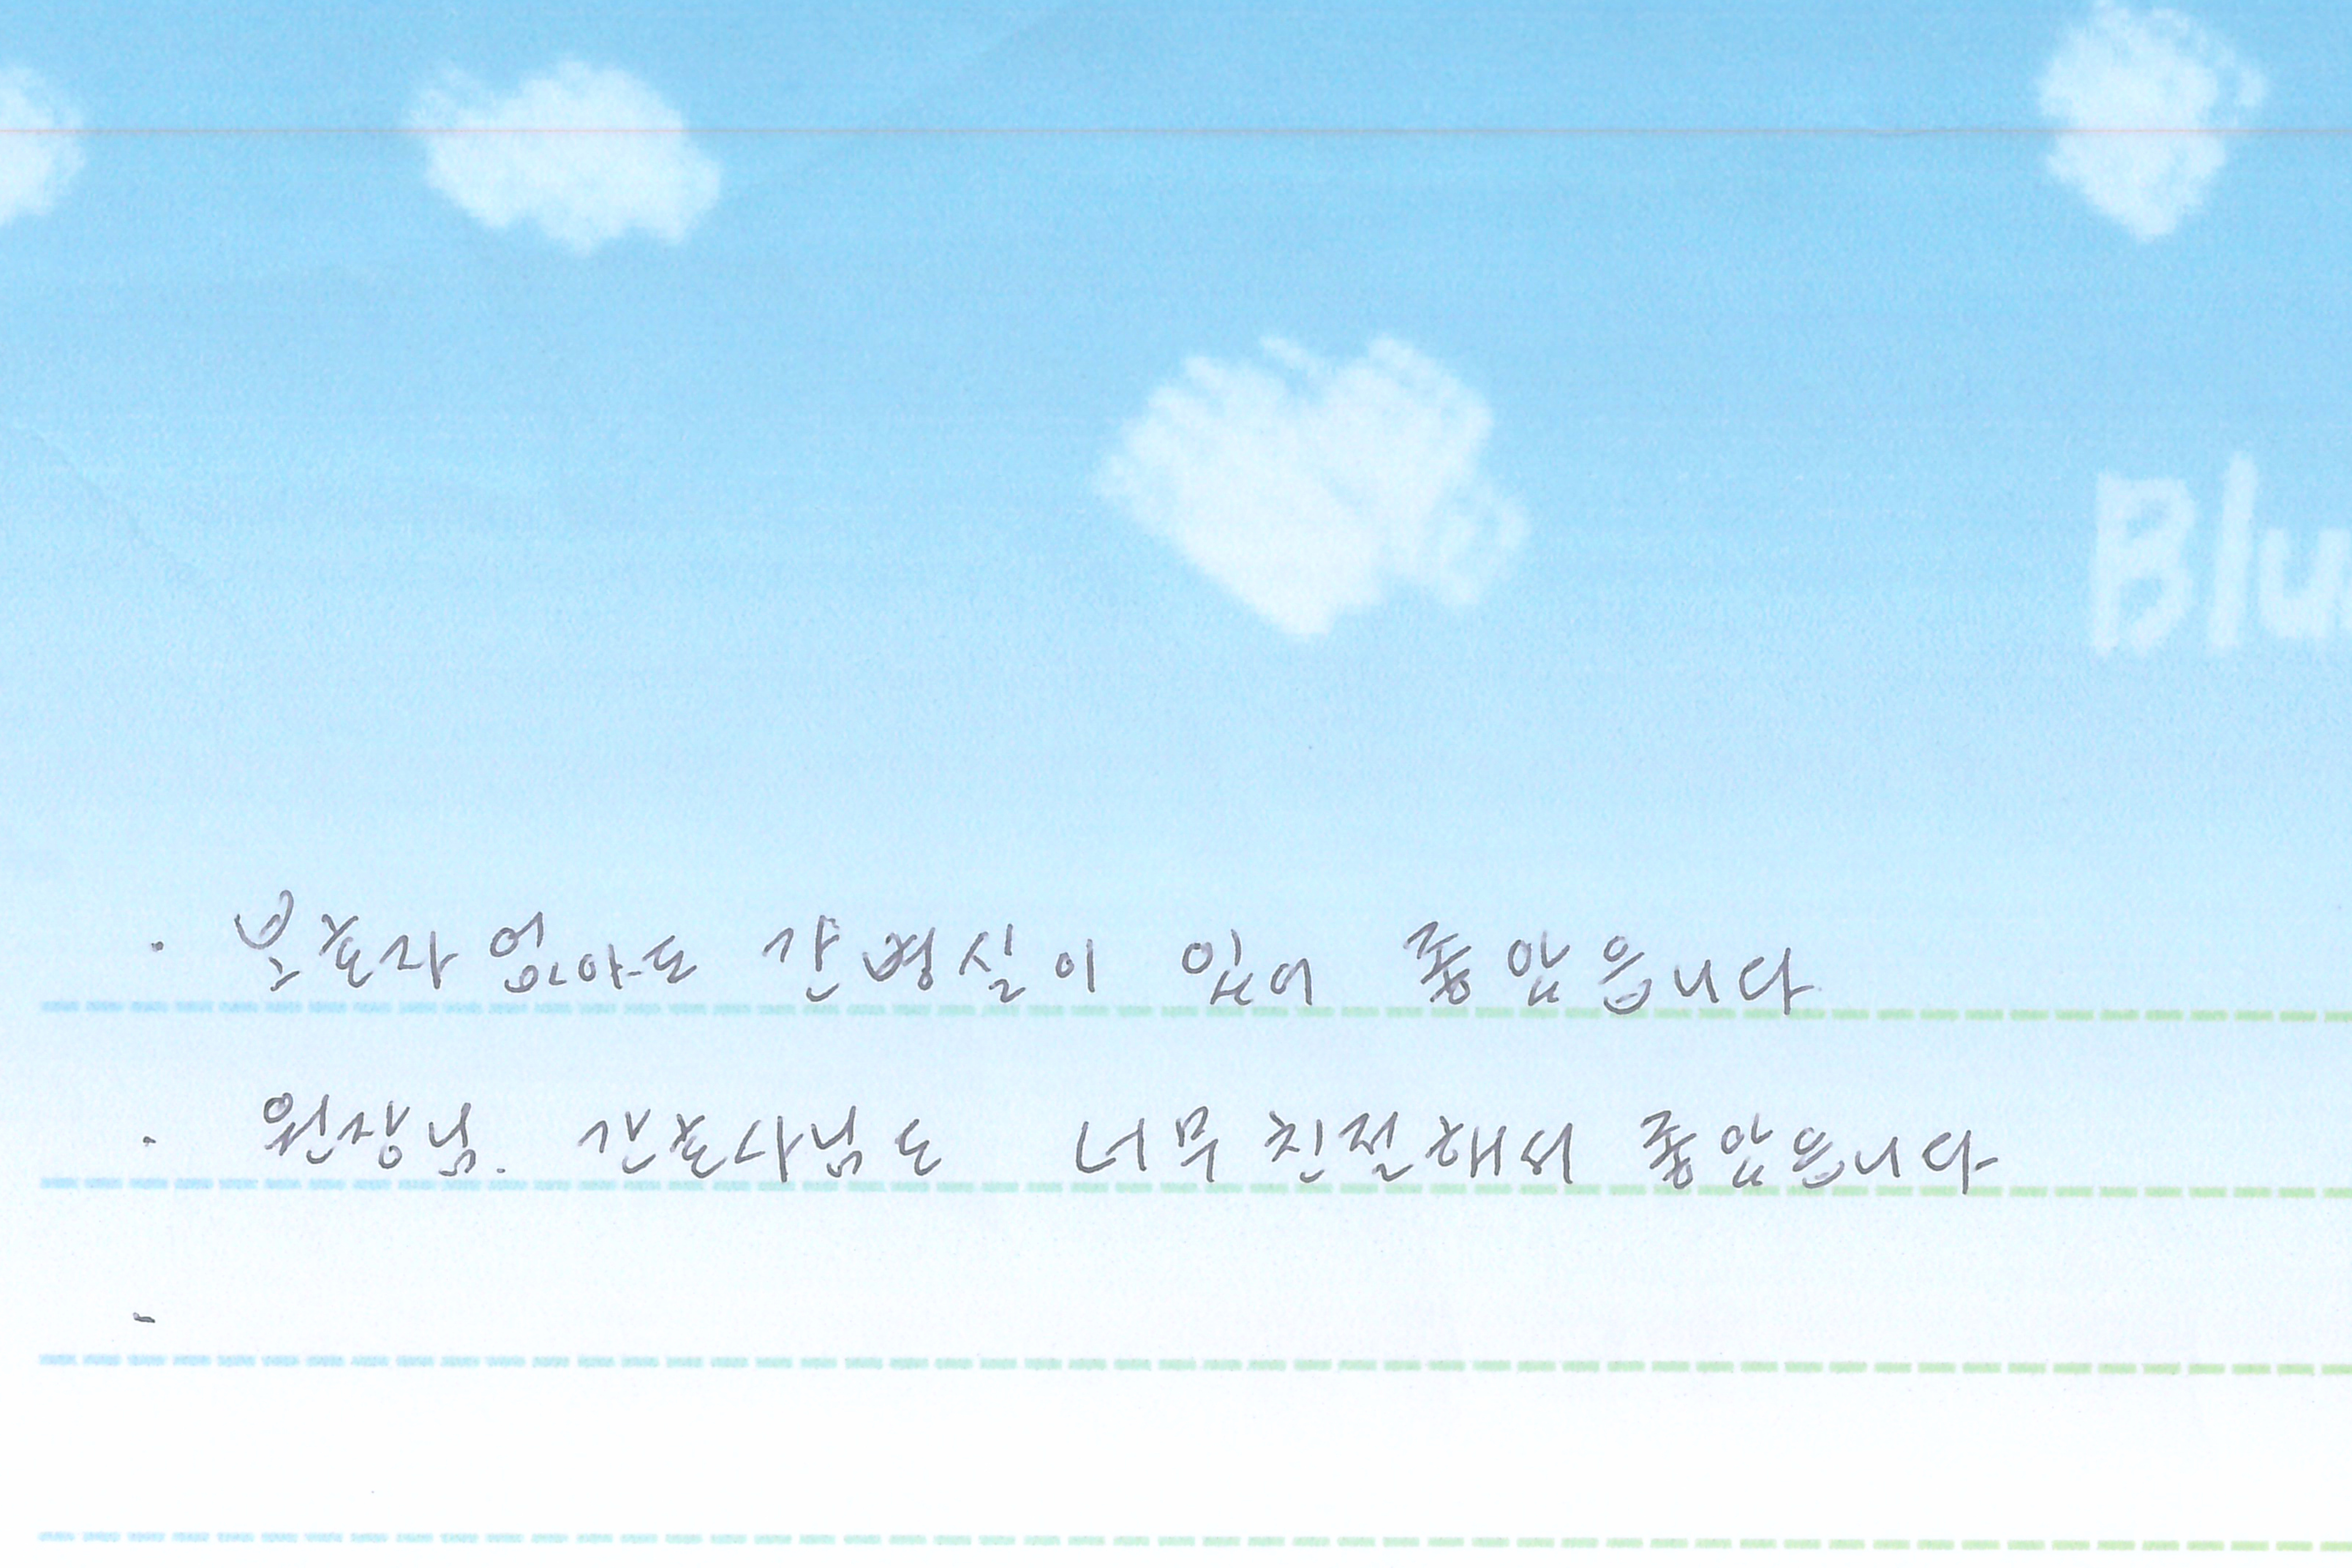 Blu
· 보호자 없아도 간병실이 있어 좋았읍니다
· 원장님. 간호사님도 너무 친절해서 좋았읍니다
-